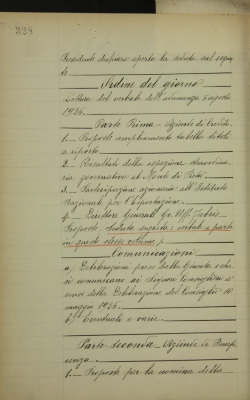 328
Presidente dichiara aperta la seduta sul seguen
te
Ordine del giorno
Lettura del verbale dell'adunanza 5 agosto
1926.
Parte Prima - Azienda di Credito
1. - Proposte ampliamento tabella titoli
a riporto
2. - Risultato della ispezione straordina
ria governativa al Monte di Pietà.
3. - Partecipazione azionaria all'Istituto
Nazionale per l'Esportazione.
4. - Direttore Generale Gr. Uff.
Proposte (seduta segreta: verbale a parte
in questo stesso volume).
Comunicazioni
a) Deliberazioni prese dalla Giunta e che
si comunicano ai Signori Consiglieri a
norma della Deliberazione del Consiglio 10
maggio 1926.
b) Eventuali e varie.
Parte Seconda - Azienda di Benefi
cenza.
1. - Proposte per la nomina della